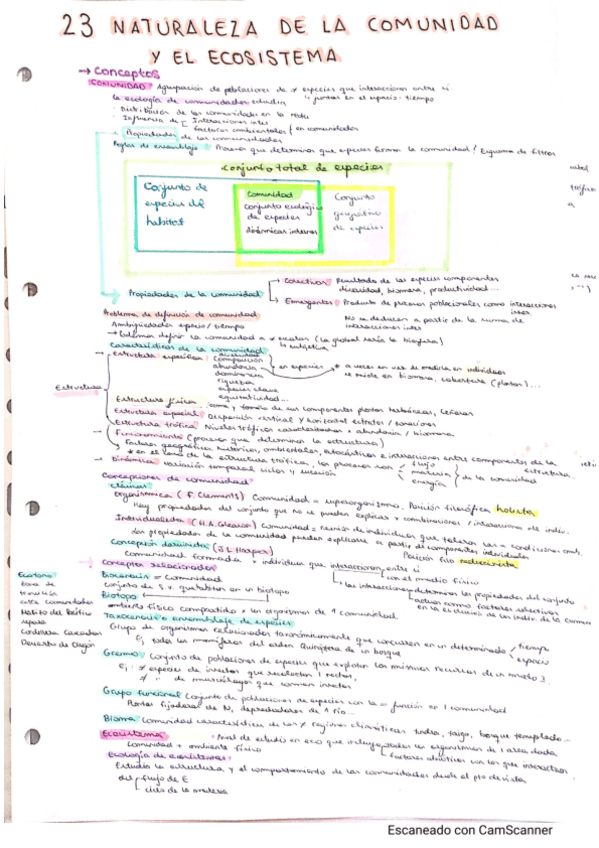 23 NATURALEZA DE LA COMUNIDAD
Y EL ECOSISTEMA
→ Conceptos
COMUNIDAD: Agrupación de poblaciones de ≠ especies que interaccionan entre sí
la ecología de comunidades estudia juntas en el espacio-tiempo
· Distribución de las comunidades en la
· Influencia de Interacciones
factores ambientales en comunidades
Propiedades de las comunidades
Reglas de ensamblaje: Procesos que determinan que especies forman la comunidad / Esquema de filtros
Conjunto total de especies
Conjunto de
especies del
habitat
Comunidad
conjunto ecológico
de especies
dinámicas internas
Conjunto
geográfico
de especies
Propiedades de la comunidad
→ Colectivas Resultado de las especies componentes
diversidad, biomasa, productividad...
→ Emergentes Producto de procesos poblacionales como interacciones
No se deducen a partir de la suma de
interacciones
Problema de definición de comunidad
Ambigüedades espacio / tiempo
definir la comunidad a ≠ escalas (la global sería la biosfera)
Características de la comunidad
Estructura
Estructura específica
diversidad
composición
abundancia
dominancia
riqueza
especies clave
equitatividad...
en especies
* a veces en vez de medirla en individuos
se mide en biomasa, cobertura (plantas)...
Estructura física forma y tamaño de sus componentes plantas herbáceas, leñosas
Estructura espacial Disposición vertical y horizontal estratos / zonaciones
Estructura trófica Niveles tróficos caracterizados x abundancia / biomasa
Funcionamiento (procesos que determinan la estructura)
Factores geográficos, históricos, ambientales, estocásticos e interacciones entre componentes de la
* en el caso de la estructura trófica, los procesos son
flujo
materia
energía
de la comunidad
estructura
Dinámica: Variación temporal ciclos y sucesión
Concepciones de comunidad
Clásicas
Organísmica (F. Clements) Comunidad = superorganismo. Posición filosófica holista
Hay propiedades del conjunto que no se pueden explicar x combinaciones / interacciones de indiv.
Individualista (H.A. Gleason) Comunidad = reunión de individuos que toleran las = condiciones amb.
Las propiedades de la comunidad pueden explicarse a partir de componentes individuales
Posición filo reduccionista
Concepción darwinista (J.L. Harper)
Comunidad formada x individuos que interaccionan entre sí
con el medio físico
las interacciones determinan las propiedades del conjunto
actúan como factores selectivos
en la evolución de los indiv. de la comun
→ Conceptos relacionados
Ecotono
zona de
transición
entre comunidades
Biocenosis = Comunidad
conjunto de s.v. que habitan en un biotopo
Biotopo
ambiente físico compartido x los organismos de 1 comunidad
Taxocenosis o ensamblaje de especies
Grupo de organismos relacionados taxonómicamente que concurren en un determinado tiempo
espacio
Ej. todos los mamíferos del orden Quiróptera de un bosque
Gremio: Conjunto de poblaciones de especies que explotan los mismos recursos de un modo
Ej. ≠ especies de insectos que recolectan
de murciélagos que comen insectos
Grupo funcional Conjunto de poblaciones de especies con la = función en 1 comunidad
Plantas fijadoras de N, depredadores de 1 río...
Bioma: Comunidad característica de las ≠ regiones climáticas tundra, taiga, bosque templado...
Ecosistema: Nivel de estudio en eco que incluye todos los organismos de 1 área dada
Comunidad + ambiente físico
factores abióticos con los que interactúan
Ecología de ecosistemas:
Estudia la estructura y el comportamiento de las comunidades desde el pto de vista
del flujo de E
ciclo de la materia
Escaneado con CamScanner